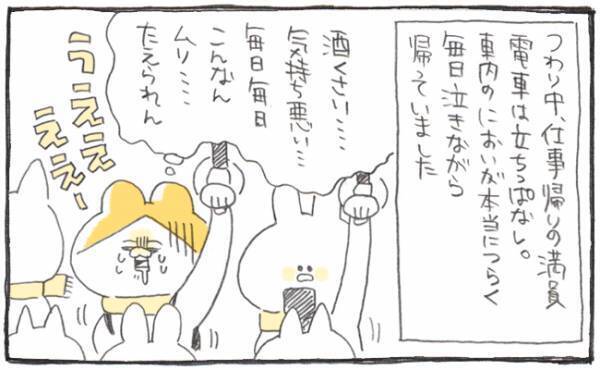 つわり中、仕事帰りの満員
電車は立ちっぱなし。
車内のにおいが本当につらく
毎日泣きながら
帰っていました
酒くさい‥‥
気持ち悪い‥
毎日毎日
こんなん
ムリ‥‥
たえられん
うええ
ええぇー